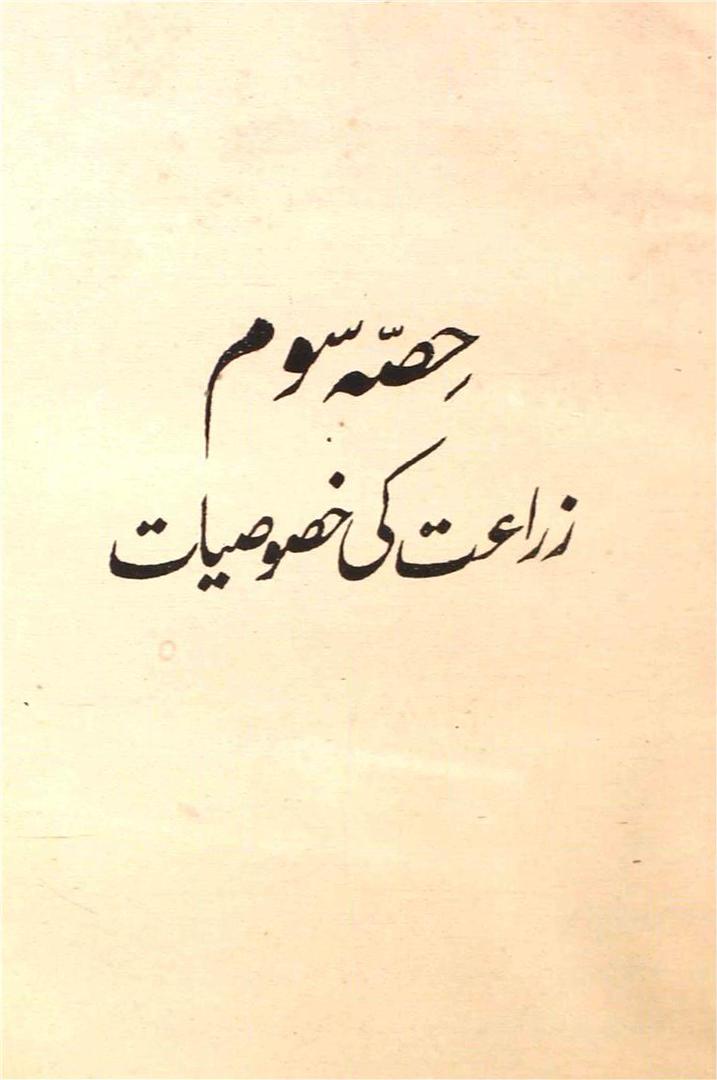 حِصّہ سوّم
زراعت کی خصوصیات